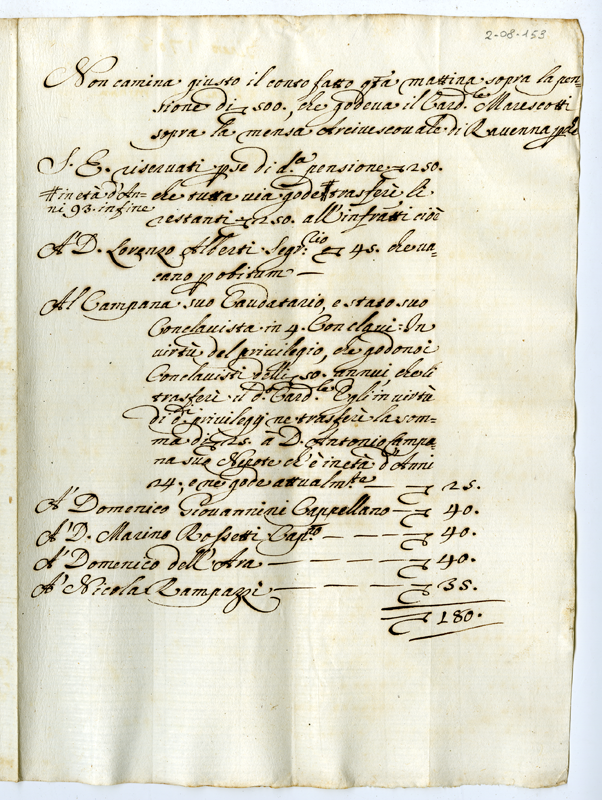 2-08-153
Non camina giusto il conto fatto qta mattina sopra la pen=
sione di ▽ 500., che godeva il Card.le Marescotti
sopra la mensa Arcivescovale di Ravenna
S. E. riservati pse di d.a pensione ▽ 250.
# in età d'An=
ni 93. in fine
che tutta via gode # trasferì li
restanti ▽ 250. all'infratti cioè
A' D. Lorenzo Alberti Segr.rio ▽ 45. che va=
cano p obitum —
Al Campana suo Caudatario, e stato suo
Conclavista in 4. Conclavi: In
virtù del privilegio, che godono i
Conclavisti delli ▽ 50. annui, che li
trasferì il d.o Card.le Egli in virtù
di d.i privilegij ne trasferì la som=
ma di ▽ 25. à D. Antonio Campa
na suo Nepote ch'è in età d'Anni
24., e ne gode attualm.te — ▽ 25.
A' Domenico Giovannini Cappellano — ▽ 40.
A' D. Marino Rossetti Cap.no — — — ▽ 40.
A' Domenico dell'Ara — — — — ▽ 40.
A' Nicola Rampazzi — — — — ▽ 35.
▽ 180.